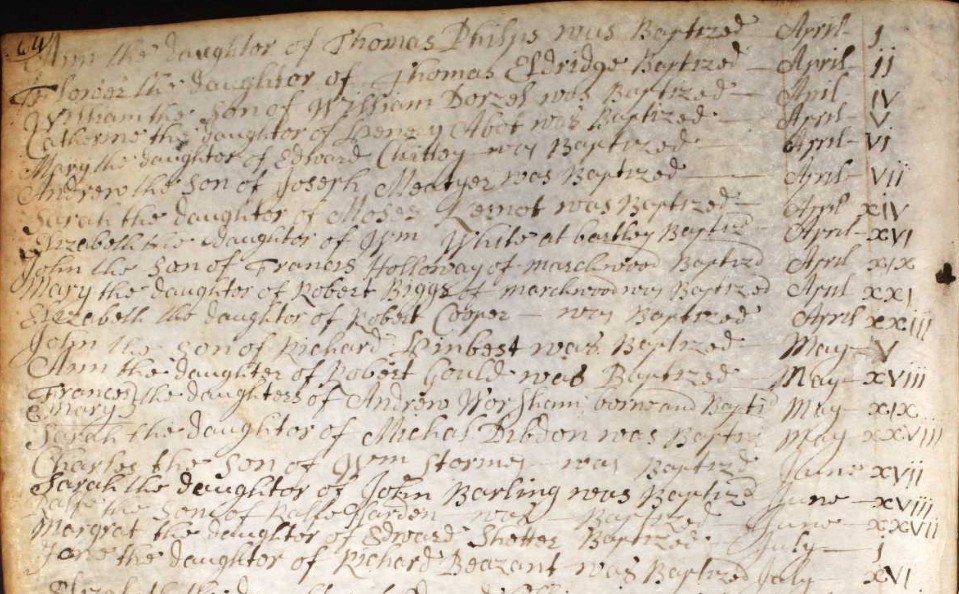 Ann the daughter of Thomas Philps was Baptized April I
Flower the daughter of Thomas Eldridge Baptized April II
William the Son of William Dorzel was Baptized April IV
Catherine the daughter of Henry Abot was Baptized April V
Mary the daughter of Edward Chittey was Baptized April VI
Andrew the Son of Joseph Meatyer was Baptized April VII
Sarah the daughter of Moses was Baptized April XIV
Elizabeth the daughter of Wm White at bartley Baptizd April XVI
John the Son of Francis Holloway of marchwood Baptizd April XIX
Mary the daughter of Robert Biggs of marchwood was Baptized April XXI
Elizabeth the daughter of Robert Cooper was Baptized April XXIII
John the Son of Richard was Baptized May V
Ann the daughter of Robert Gould was Baptized May XVIII
Frances the daughters of Andrew Worsham borne and Bapti May XIX
& Mary
Sarah the daughter of Michal Dibdon was Baptiz May XXVIII
Charles the Son of Wm Stormey was Baptizd June XVII
Sarah the daughter of John Barling was Baptizd June XVIII
the Son of was Baptized June XXVII
Margrat the daughter of Edward Shetter Baptized July I
Jane the daughter of Richard Beazant was Baptized July XVI